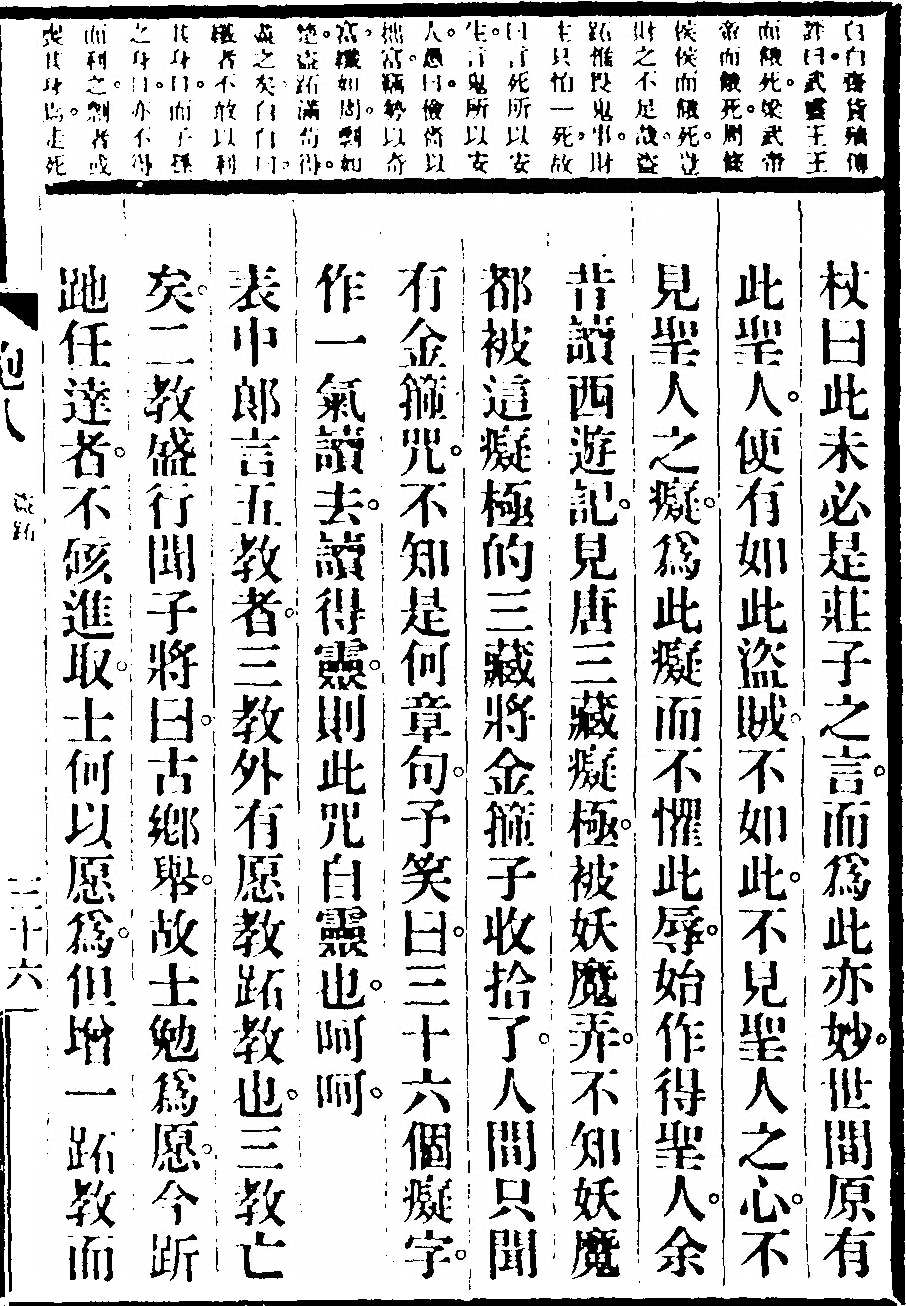 白白齋貨殖傳
評曰。武靈王王
而餓死。梁武帝
帝而餓死。周條
侯侯而餓死。豈
財之不足哉。盜
跖惟畏鬼。事財
主只怕一死。故
曰言死所以安
生。言鬼所以安
人。愚曰。儉嗇以
拙富。竊勢以奇
富。如周。剽如
楚。盜跖滿苟得。
之矣。白白曰。
者不敢以利
其身。而子孫
之身。亦不得
而利之。剽者或
喪其身。爲走死
杖曰此未必是莊子之言。而爲此亦妙。世間原有
此聖人。便有如此盜賊。不如此。不見聖人之心。不
見聖人之癡。爲此癡而不懼此辱。始作得聖人。余
昔讀西遊記。見唐三藏癡極。被妖魔弄。不知妖魔
都被這癡極的三藏將金箍子收拾了。人間只聞
有金箍咒。不知是何章句。予笑曰。三十六個癡字。
作一氣讀去。讀得靈。則此咒自靈也。呵呵。
袁中郎言五教者。三教外有愿教跖教也。三教亡
矣。二教盛行聞子將曰。古鄉舉。故士勉爲愿。今斥
跅任達者。不核進取。士何以愿爲。但增一跖教而
炮八
盜跖
三十六